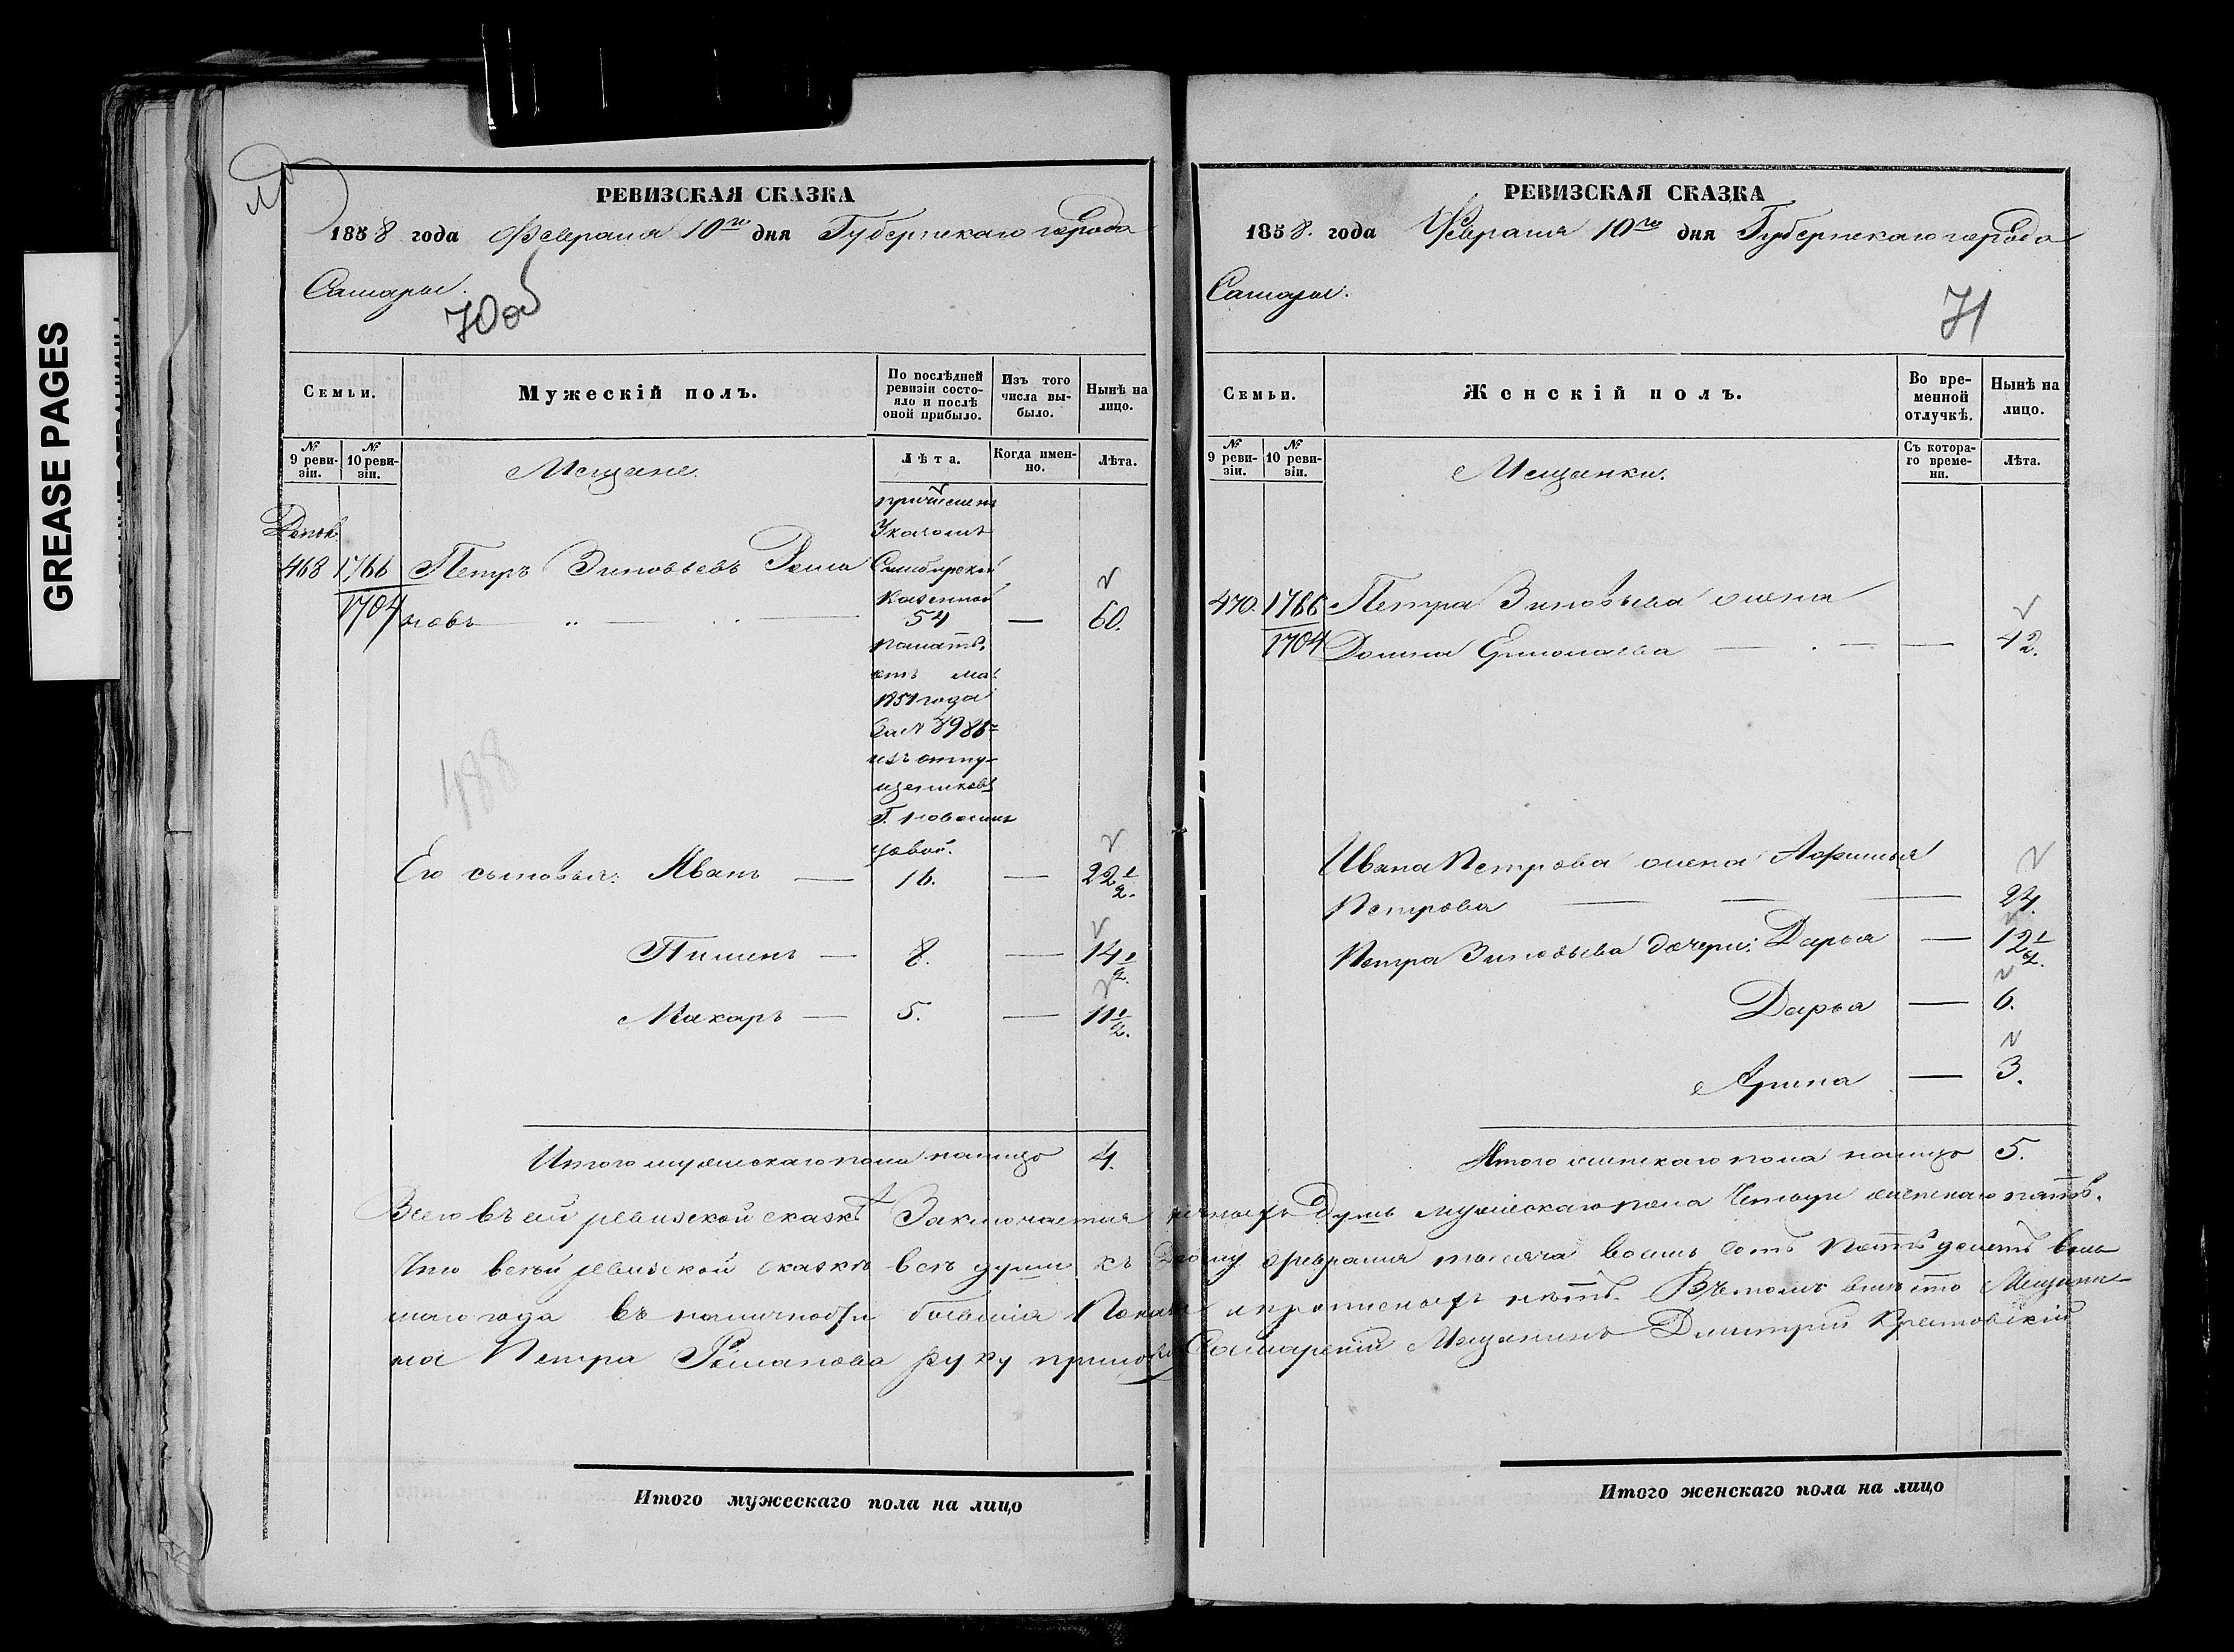 GREASE PAGES
РЕВИЗСКАЯ СКАЗКА
1858 года Февраля 10го дня Губернскаго города
Самары.
70об
Семьи.
Мужескій полъ.
По послѣдней ревизіи состояло и послѣ оной прибыло.
Изъ того числа выбыло.
Нынѣ на лицо.
№ 9 ревизіи.
№ 10 ревизіи.
Мещане.
Лѣта.
Когда именно.
Лѣта.
причисленъ
Указомъ
468 1766 Петръ Зиновьевъ Рома Симбирской
казенной
1704 новъ 54 — 60.
палаты
отъ мая
1851 года
за № 3986
изъ отпу-
щенниковъ
Г. Новосиль
цовой.
488
Его сыновья: Иванъ — 16. — 22 1/2.
Пименъ — 8. — 14 1/2.
Макаръ — 5. — 11 1/2.
Итого мужескаго пола налицо 4.
РЕВИЗСКАЯ СКАЗКА
1858. года Февраля 10го дня Губернскаго города
Самары.
71
Семьи.
Женскій полъ.
Во временной отлучкѣ.
Нынѣ на лицо.
№ 9 ревизіи.
№ 10 ревизіи.
Мещанки.
Съ котораго времени.
Лѣта.
470. 1766 Петра Зиновьева жена
1704 Домна Ермолаева — — 42.
Ивана Петрова жена Афимья
Петрова — — — 24.
Петра Зиновьева дочери: Дарья — 12 1/2.
Дарья — 6.
Арина — 3.
Итого женскаго пола налицо 5.
Всего въ сей ревизской сказкѣ Заключается душъ мужескаго пола Четыре женскаго пять.
Что въ сей ревизской сказкѣ всѣ души къ февраля тысяча восемь сотъ пятьдесятъ вось
маго года въ наличности бывшія и прописныхъ нѣтъ. Въ томъ вмѣсто Мещани-
на Петра Романова руку приложилъ Самарскій Мещанинъ Дмитрій
Итого мужескаго пола на лицо
Итого женскаго пола на лицо